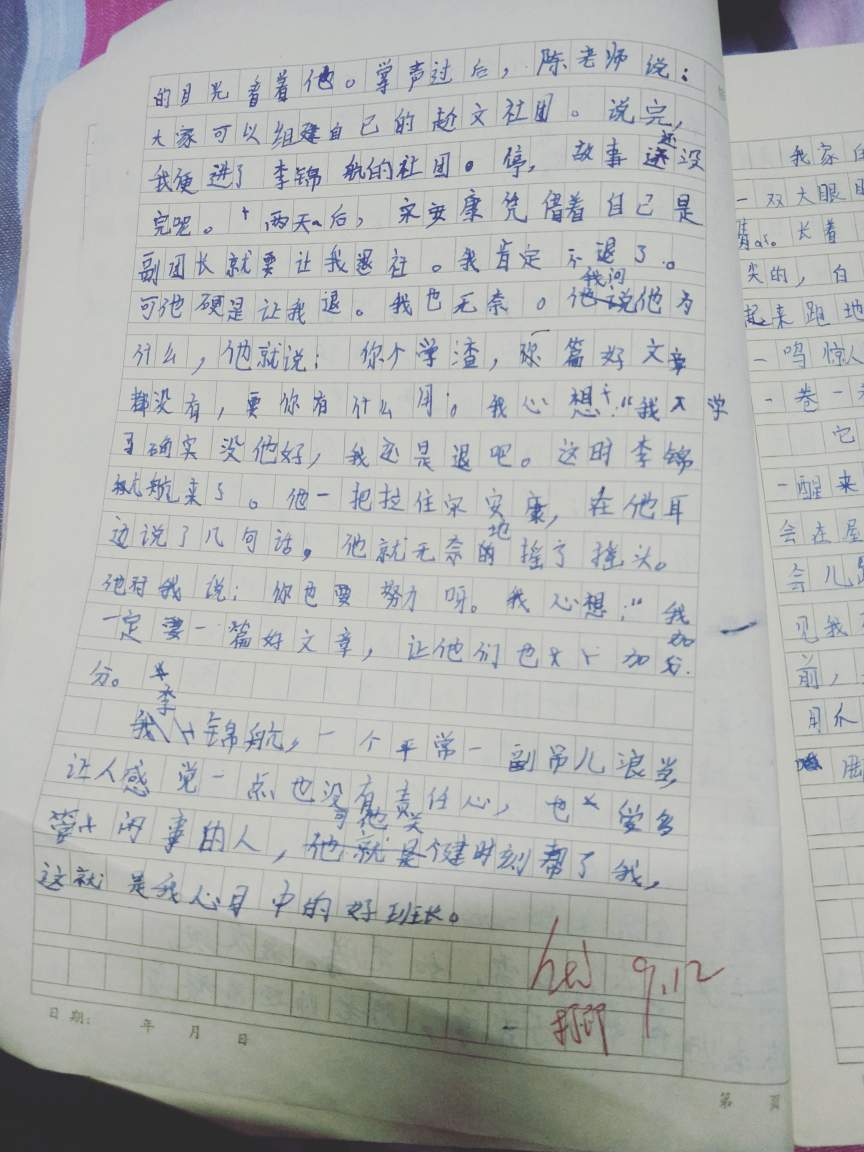 的目光看着他。掌声过后，陈老师说：
大家可以组建自己的趁文社团。说完，
我便进了李锦航的社团。停，故事还没
完呢。两天后，宋安康凭借着自己是
副团长就要让我退社。我肯定不退了。
可他硬是让我退。我也无奈。我问他为
什么，他就说：你个学渣，篇好文章
都没有，要你有什么用。我心想："我入学
确实没他好，我还是退吧。这时李锦
航来了。他一把拉住宋安康，在他耳
边说了几句话，他就无奈地摇了摇头。
他对我说：你也要努力呀。我心想："我
一定要一篇好文章，让他们也加
分。
李锦航，一个平常一副吊儿浪当
让人感觉一点也没有责任心，也爱多
管闲事的人，可他关键时刻帮了我，
这就是我心目中的好班长。
9.12
日期： 年 月 日
第 页
我家的
一双大眼
长着
尖的，白
起来跑地
一鸣惊人
一卷一
它
一醒来
会在屋
会儿
见我
前，
用爪